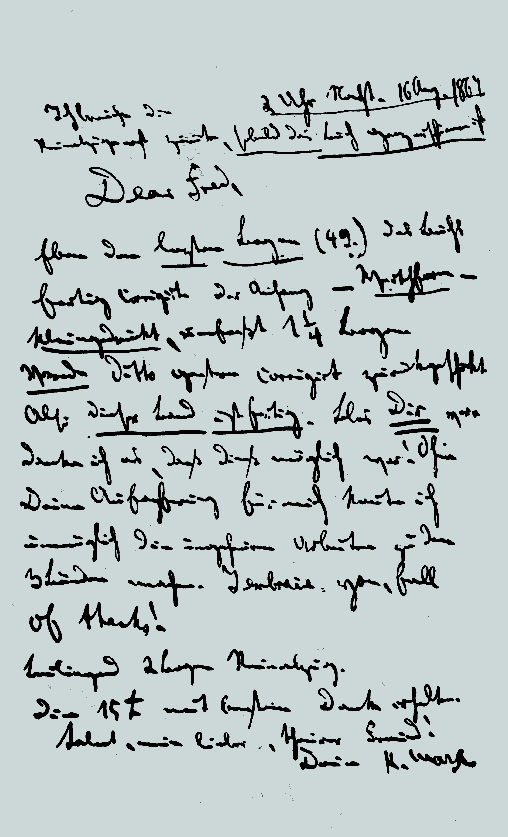 Ich brauche die 2 Uhr Nacht, 16 Aug. 1867
zurück, sobald das Buch ganz erschienen ist
Dear Fred,
Eben den letzten Bogen (49.) des Buchs
fertig corrigirt. Der Anhang – Werthform –
kleingedruckt, umfaßt 1 1/4 Bogen.
Vorrede ditto gestern corrigirt zurückgeschickt.
Also dieser Band ist fertig. Blos Dir ver-
danke ich es, daß dieß möglich war! Ohne
Deine Aufopferung für mich konnte ich
unmöglich die ungeheuren Arbeiten zu den
3 Bänden machen. I embrace you, full
of thanks!
Beiliegend 2 Bogen Reinabzug.
Die 15 £ mit bestem Dank erhalten.
Salut, mein lieber, theurer Freund!
Dein K. Marx